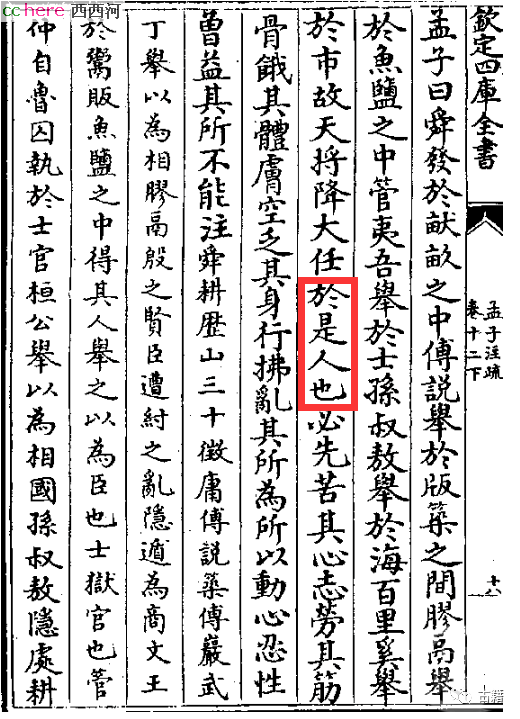 cchere 西西河
欽定四庫全書
孟子注疏
卷十二下
十八
孟子曰舜發於畎畝之中傅説舉於版築之間膠鬲舉
於魚鹽之中管夷吾舉於士孫叔敖舉於海百里奚舉
於市故天將降大任於是人也必先苦其心志勞其筋
骨餓其體膚空乏其身行拂亂其所為所以動心忍性
曾益其所不能注舜耕歴山三十徵庸傅説築傅巖武
丁舉以為相膠鬲殷之賢臣遭紂之亂隱遁為商文王
於鬻販魚鹽之中得其人舉之以為臣也士獄官也管
仲自魯囚執於士官桓公舉以為相國孫叔敖隱處耕
古籍